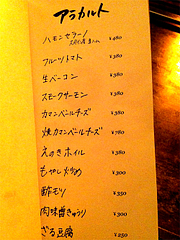 アラカルト
ハモンセラーノ ¥480
フルーツトマト ¥380
生ベーコン ¥380
スモークサーモン ¥380
カマンベールチーズ ¥580
焼カマンベールチーズ ¥780
えのきホイル ¥380
もやし炒め ¥300
酢モツ ¥350
肉味噌きゅうり ¥300
ざる豆腐 ¥250